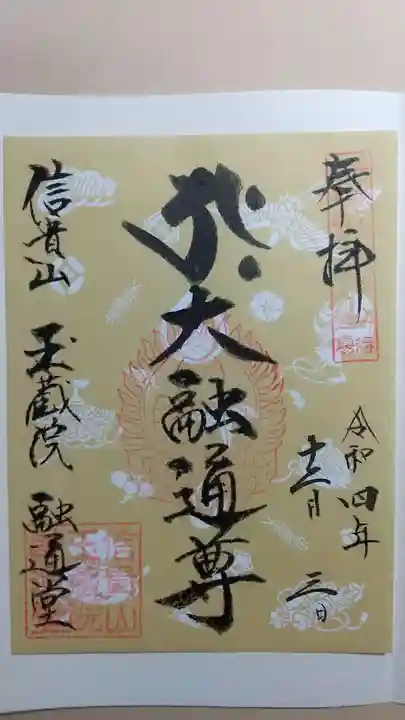 奉拝
令和四年
十二月
三日
大融通尊
信貴山 玉蔵院 融通堂